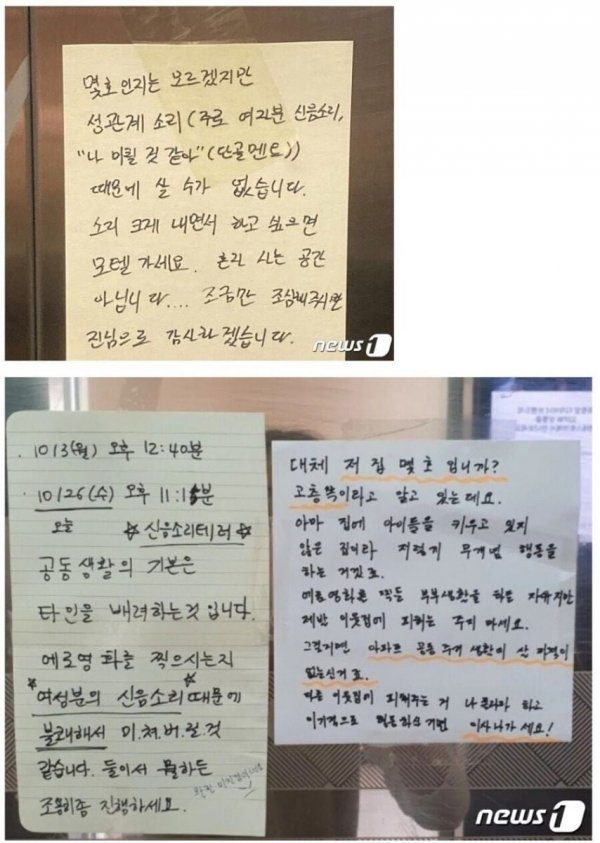 몇호인지는 모르겠지만
성관계 소리 (주로 여자분 신음소리,
"나 미칠 것 같아" (단골멘트))
때문에 살 수가 없습니다.
소리 크게 내면서 하고 싶으면
모텔 가세요. 혼자 사는 공간
아닙니다.... 조금만 조심해주시면
진심으로 감사하겠습니다.
news1
10/3(월) 오후 12:40분
10/26(수) 오후 11:15분
오늘 ☆신음소리테러☆
공동생활의 기본은
타인을 배려하는것 입니다.
에로영화를 찍으시는지
*여성분의 신음소리*때문에
불쾌해서 미.쳐.버.릴.것
같습니다. 둘이서 뭘하든
조용히좀 진행하세요.
대체 저 집 몇호 입니까?
고층쪽이라고 알고 있는데요.
아마 집에 아이들을 키우고 있지
않은 집이라 저렇게 무개념 행동을
하는 거겠죠.
에로영화를 찍든 부부생활을 하든 자유지만
제발 이웃집에 피해는 주지 마세요.
그럴거면 아파트 공동 주거 생활에 산 자격이
없는신거죠.
다른 이웃집이 피해주는 거 나 몰라라 하고
이기적으로 행동하실거면 이사나가세요!
news1